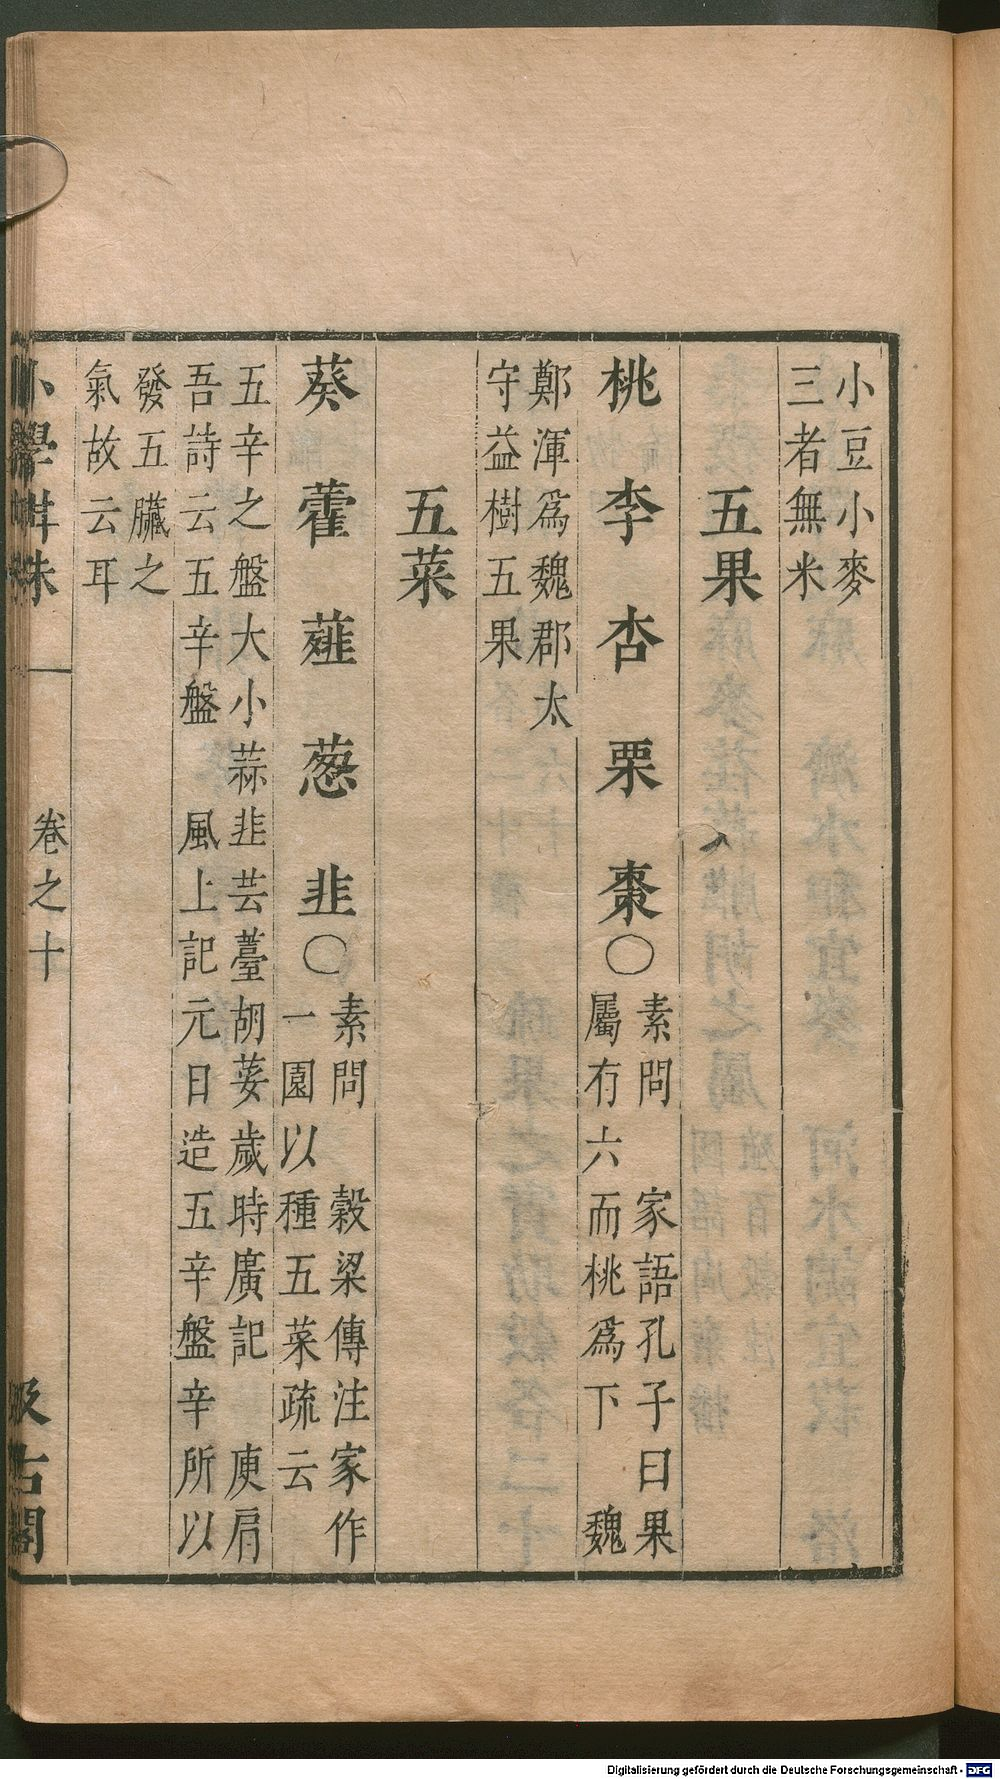 小豆小麥
三者無米
五果
桃李杏栗棗○
素問 家語孔子曰果
屬有六而桃爲下 魏
鄭渾爲魏郡太
守益樹五果
五菜
葵藿薤葱韭○
素問 穀梁傳注家作
一園以種五菜疏云
五辛之盤大小蒜韭芸薹胡荽歲時廣記 庾肩
吾詩云五辛盤 風上記元日造五辛盤辛所以
發五臟之
氣故云耳
小學紺珠
卷之十
汲古閣
Digitalisierung gefördert durch die Deutsche Forschungsgemeinschaft - DFG